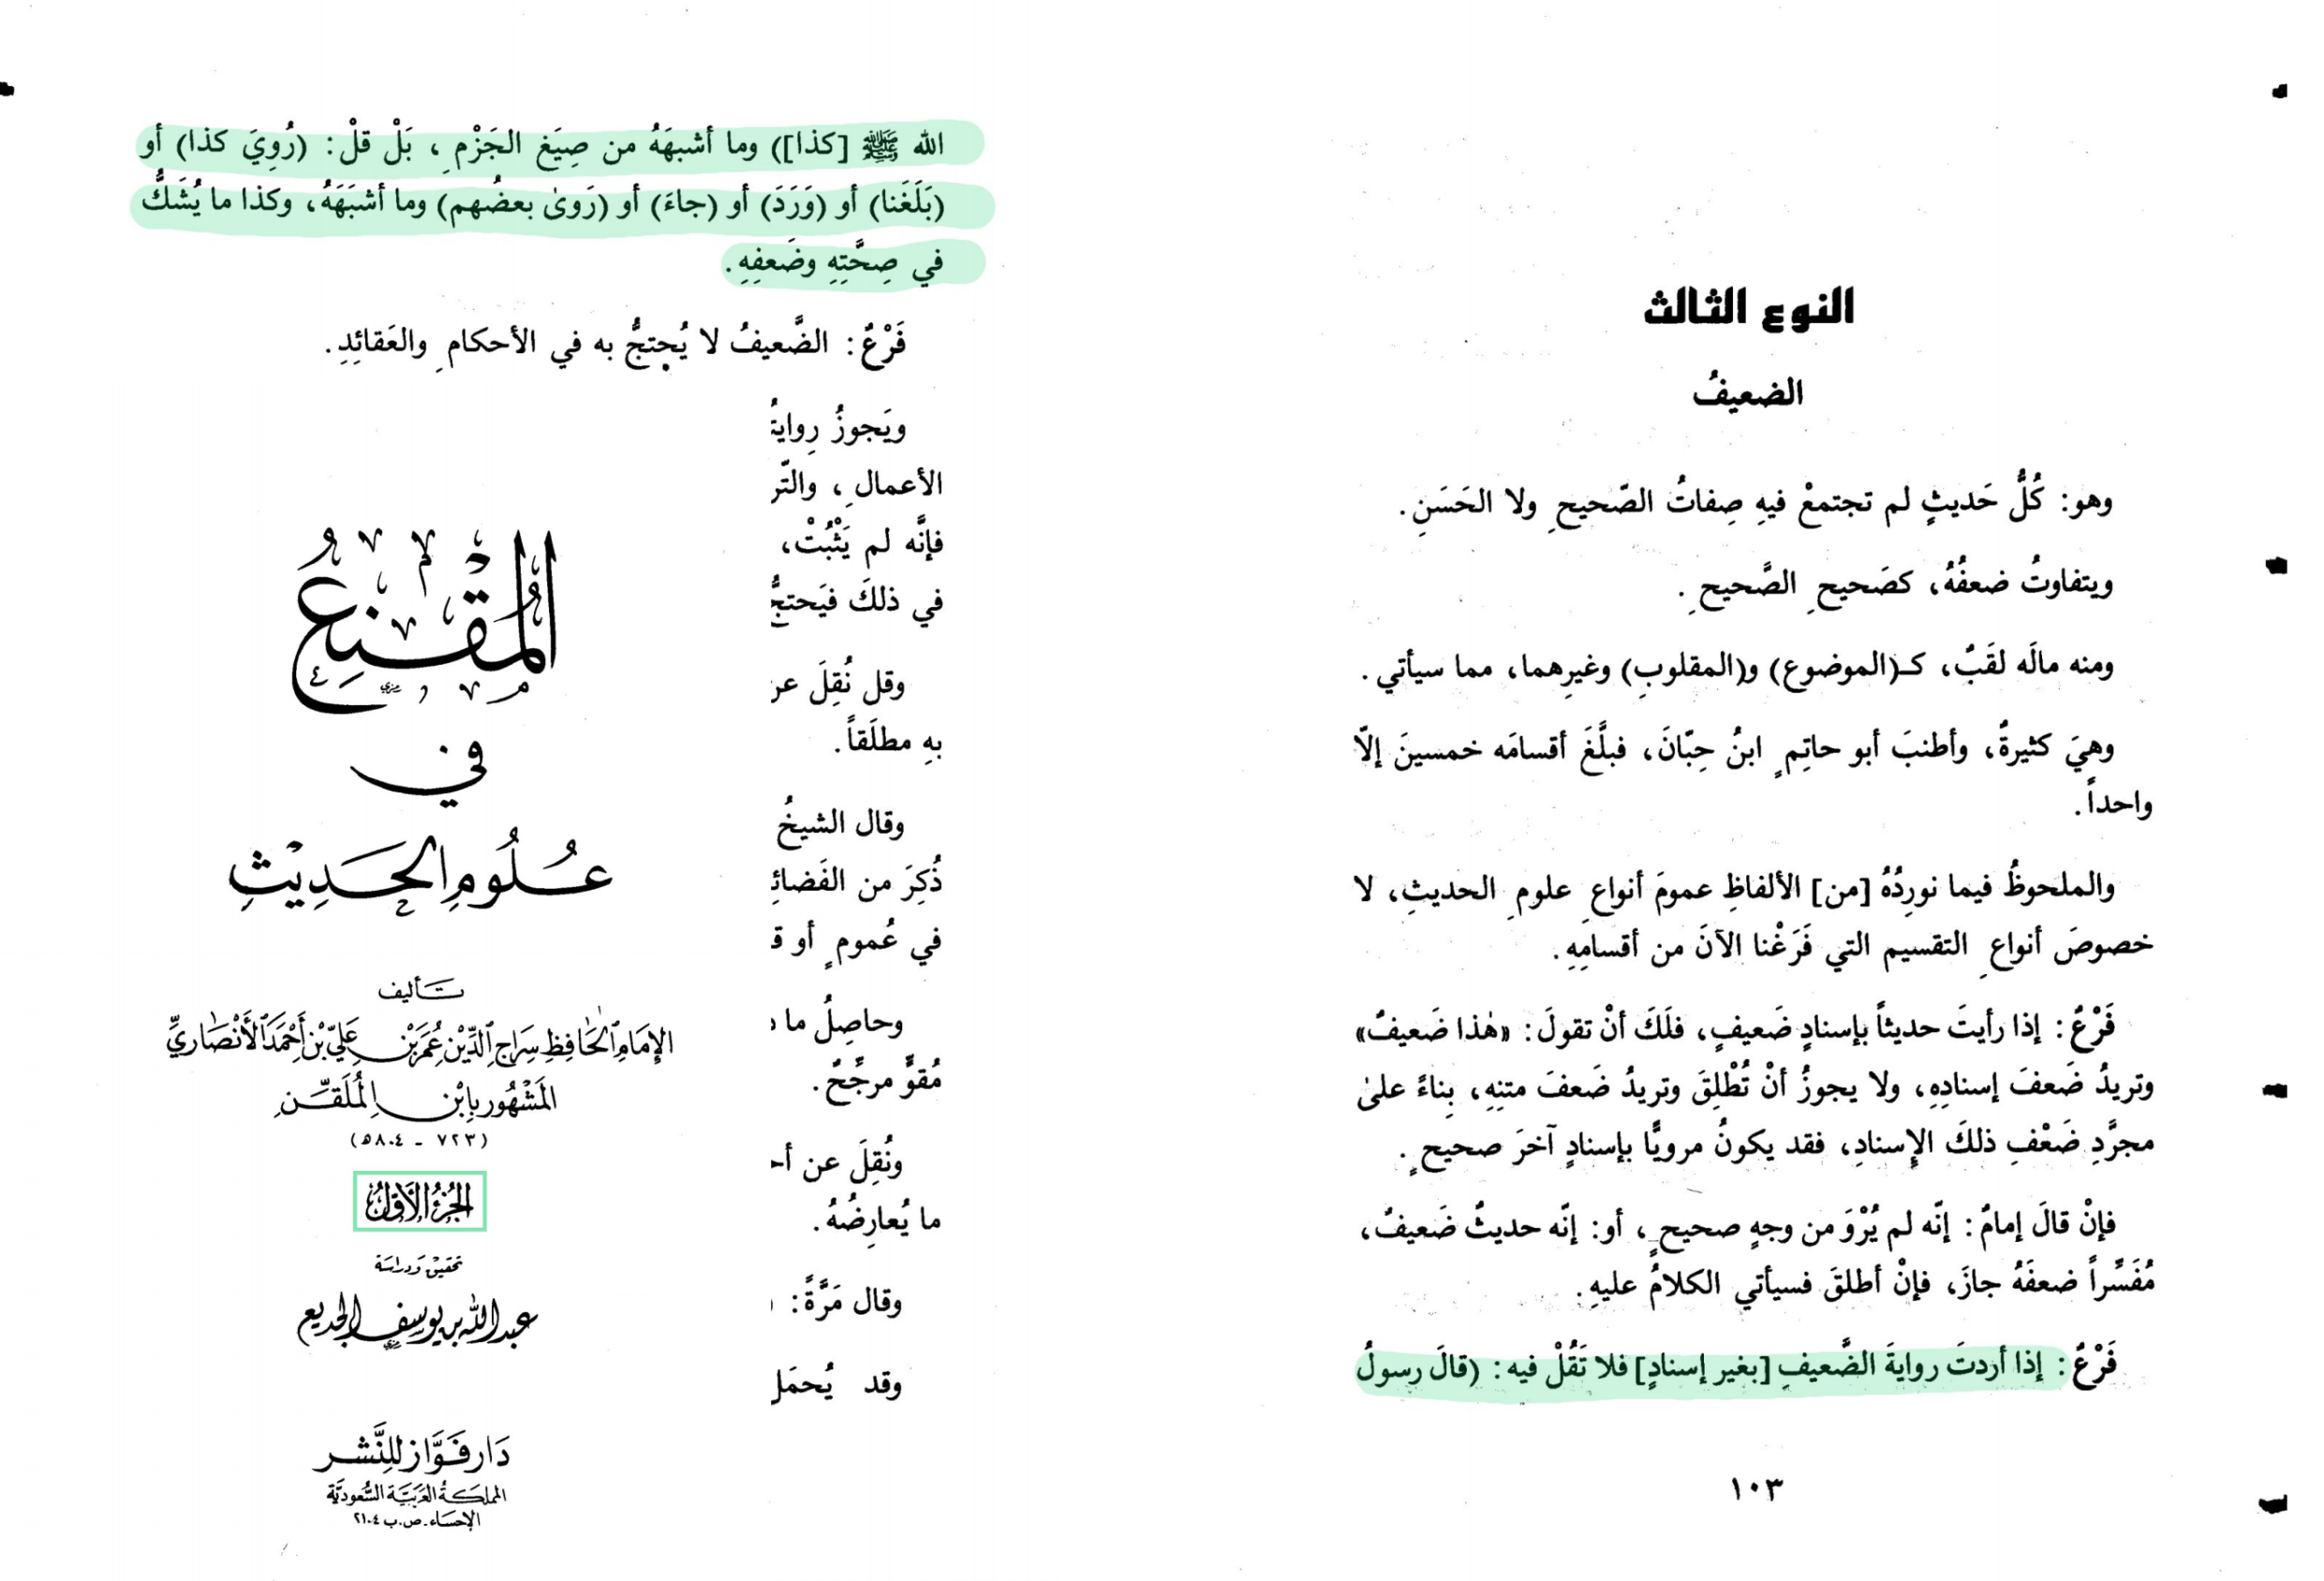 النوع الثالث
الضعيفُ
وهو: كُلُّ حَديثٍ لم تجتمعْ فيهِ صِفاتُ الصّحيحِ ولا الحَسَنِ.
ويتفاوتُ ضعفُهُ، كصَحيحِ الصَّحيحِ.
ومنه مالَه لقَبٌ، كـ(الموضوع) و(المقلوبِ) وغيرِهما، مما سيأتي.
وهيَ كثيرةٌ، وأطنبَ أبو حاتِمٍ ابنُ حِبّانَ، فبلَّغَ أقسامَه خمسينَ إلاّ
واحداً.
والملحوظُ فيما نورِدُهُ [من] الألفاظِ عمومَ أنواعِ علومِ الحديثِ، لا
خصوصَ أنواعِ التقسيم التي فَرَغْنا الآنَ من أقسامِهِ.
فَرْعٌ: إذا رأيتَ حديثاً بإسنادٍ ضَعيفٍ، فلَكَ أنْ تقولَ: «هٰذا ضَعيفٌ»
وتريدُ ضَعفَ إسنادِهِ، ولا يجوزُ أنْ تُطْلِقَ وتريدُ ضَعفَ متنِهِ، بِناءً علىٰ
مجرَّدِ ضَعْفِ ذلكَ الإِسنادِ، فقد يكونُ مرويًّا بإسنادٍ آخرَ صحيحٍ.
فإنْ قالَ إمامٌ: إنّه لم يُرْوَ من وجهٍ صحيحٍ، أو: إنّه حديثٌ ضَعيفٌ،
مُفَسِّراً ضعفَهُ جازَ، فإنْ أطلقَ فسيأتي الكلامُ عليهِ.
فَرْعٌ: إذا أردتَ روايةَ الضَّعيفِ [بغير إسنادٍ] فلا تَقُلْ فيه: (قالَ رسولُ
١٠٣
الله ﷺ [كذا]) وما أشبهَهُ من صِيَغ الجَزْمِ، بَلْ قلْ: (رُوِيَ كذا) أو
(بَلَغَنا) أو (وَرَدَ) أو (جاءَ) أو (رَوىٰ بعضُهم) وما أشبَهَهُ، وكذا ما يُشَكُّ
في صِحَّتِهِ وضَعفِهِ.
فَرْعٌ: الضَّعيفُ لا يُحتجُّ به في الأحكامِ والعَقائِدِ.
ويَجوزُ رواية
الأعمالِ، والتّر
فإنَّه لم يَثْبُتْ،
في ذلكَ فيَحتجُّ
وقل نُقِلَ عن
بهِ مطلَقاً.
وقال الشيخُ
ذُكِرَ من الفَضائِ
في عُمومٍ أو ق
وحاصِلُ ما
مُقوٍّ مرجِّحٌ.
ونُقِلَ عن أحـ
ما يُعارِضُهُ.
وقال مَرَّةً:
وقد يُحمَل
المُقْنِعُ
في
عُلُومِ الحَدِيْثِ
تَأليف
الإِمَامِ الحَافِظِ سِرَاجِ الدِّيْنِ عُمَرَ بْنِ عَلِيّ بْنِ أَحْمَدَ الأَنْصَارِيِّ
المَشْهُور بِابْنِ المُلَقِّنِ
(٧٢٣ - ٨٠٤هـ)
الجُزْءُ الأَوَّلُ
تحقيق ودراسة
عبد الله بن يوسف الجديع
دَار فَوَّاز للنَّشر
المملكة العَرَبيَّة السُّعوديَّة
الإحسَاء - ص.ب ٢١٠٤